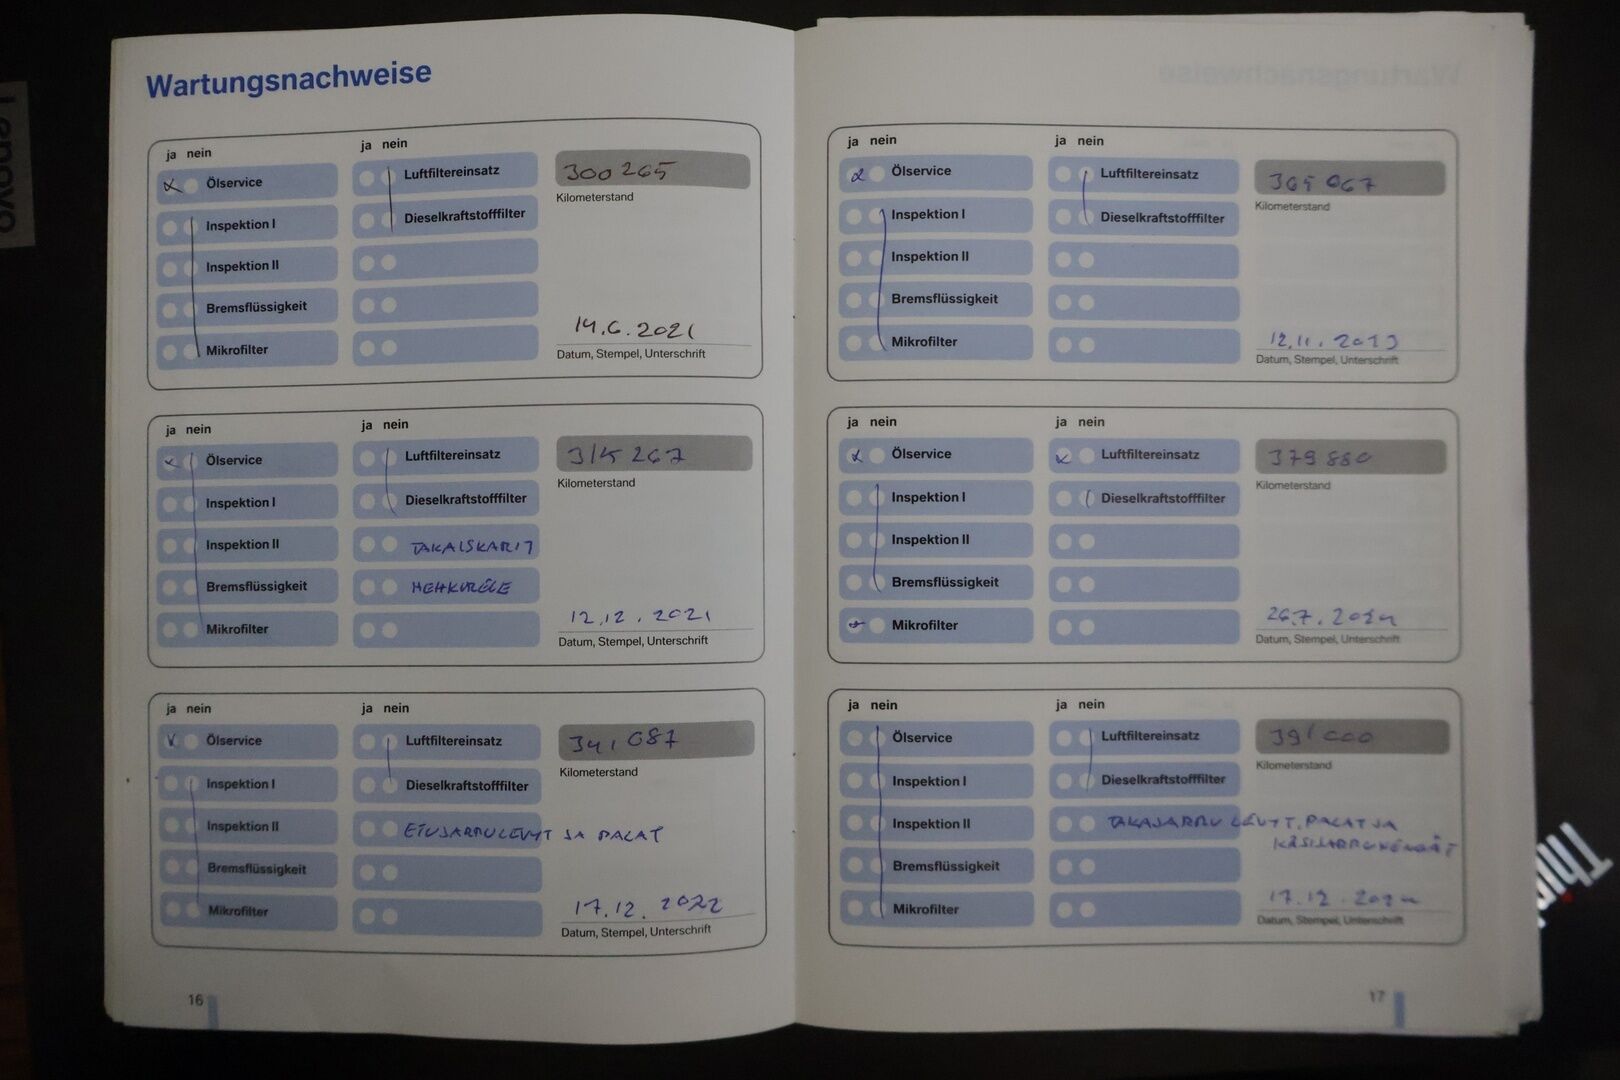 Wartungsnachweise
ja nein
ja nein
Ölservice
Inspektion I
Inspektion II
Bremsflüssigkeit
Mikrofilter
Luftfiltereinsatz
Dieselkraftstofffilter
300 265
Kilometerstand
14.6.2021
Datum, Stempel, Unterschrift
ja nein
ja nein
Ölservice
Inspektion I
Inspektion II
Bremsflüssigkeit
Mikrofilter
Luftfiltereinsatz
Dieselkraftstofffilter
TAKAISKARIT
HEHKURELE
315 267
Kilometerstand
12.12.2021
Datum, Stempel, Unterschrift
ja nein
ja nein
Ölservice
Inspektion I
Inspektion II
Bremsflüssigkeit
Mikrofilter
Luftfiltereinsatz
Dieselkraftstofffilter
ETUJARRULEVYT JA PALAT
341 087
Kilometerstand
17.12.2022
Datum, Stempel, Unterschrift
16
ja nein
ja nein
Ölservice
Inspektion I
Inspektion II
Bremsflüssigkeit
Mikrofilter
Luftfiltereinsatz
Dieselkraftstofffilter
365 067
Kilometerstand
12.11.2023
Datum, Stempel, Unterschrift
ja nein
ja nein
Ölservice
Inspektion I
Inspektion II
Bremsflüssigkeit
Mikrofilter
Luftfiltereinsatz
Dieselkraftstofffilter
379 880
Kilometerstand
26.7.2024
Datum, Stempel, Unterschrift
ja nein
ja nein
Ölservice
Inspektion I
Inspektion II
Bremsflüssigkeit
Mikrofilter
Luftfiltereinsatz
Dieselkraftstofffilter
TAKAJARRULEVYT, PALAT JA
KÄSIJARRUKENGÄT
391 000
Kilometerstand
17.12.2024
Datum, Stempel, Unterschrift
17
Lenovo